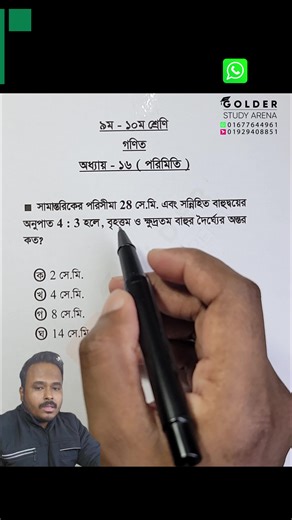 GOLDER
STUDY ARENA
01677644961
01929408851
৯ম - ১০ম শ্রেণি
গণিত
অধ্যায় - ১৬ ( পরিমিতি )
■ সামান্তরিকের পরিসীমা 28 সে.মি. এবং সন্নিহিত বাহুদ্বয়ের
অনুপাত 4 : 3 হলে , বৃহত্তম ও ক্ষুদ্রতম বাহুর দৈর্ঘ্যের অন্তর
কত?
ক 2 সে.মি.
খ 4 সে.মি.
গ 8 সে.মি.
ঘ 14 সে.মি